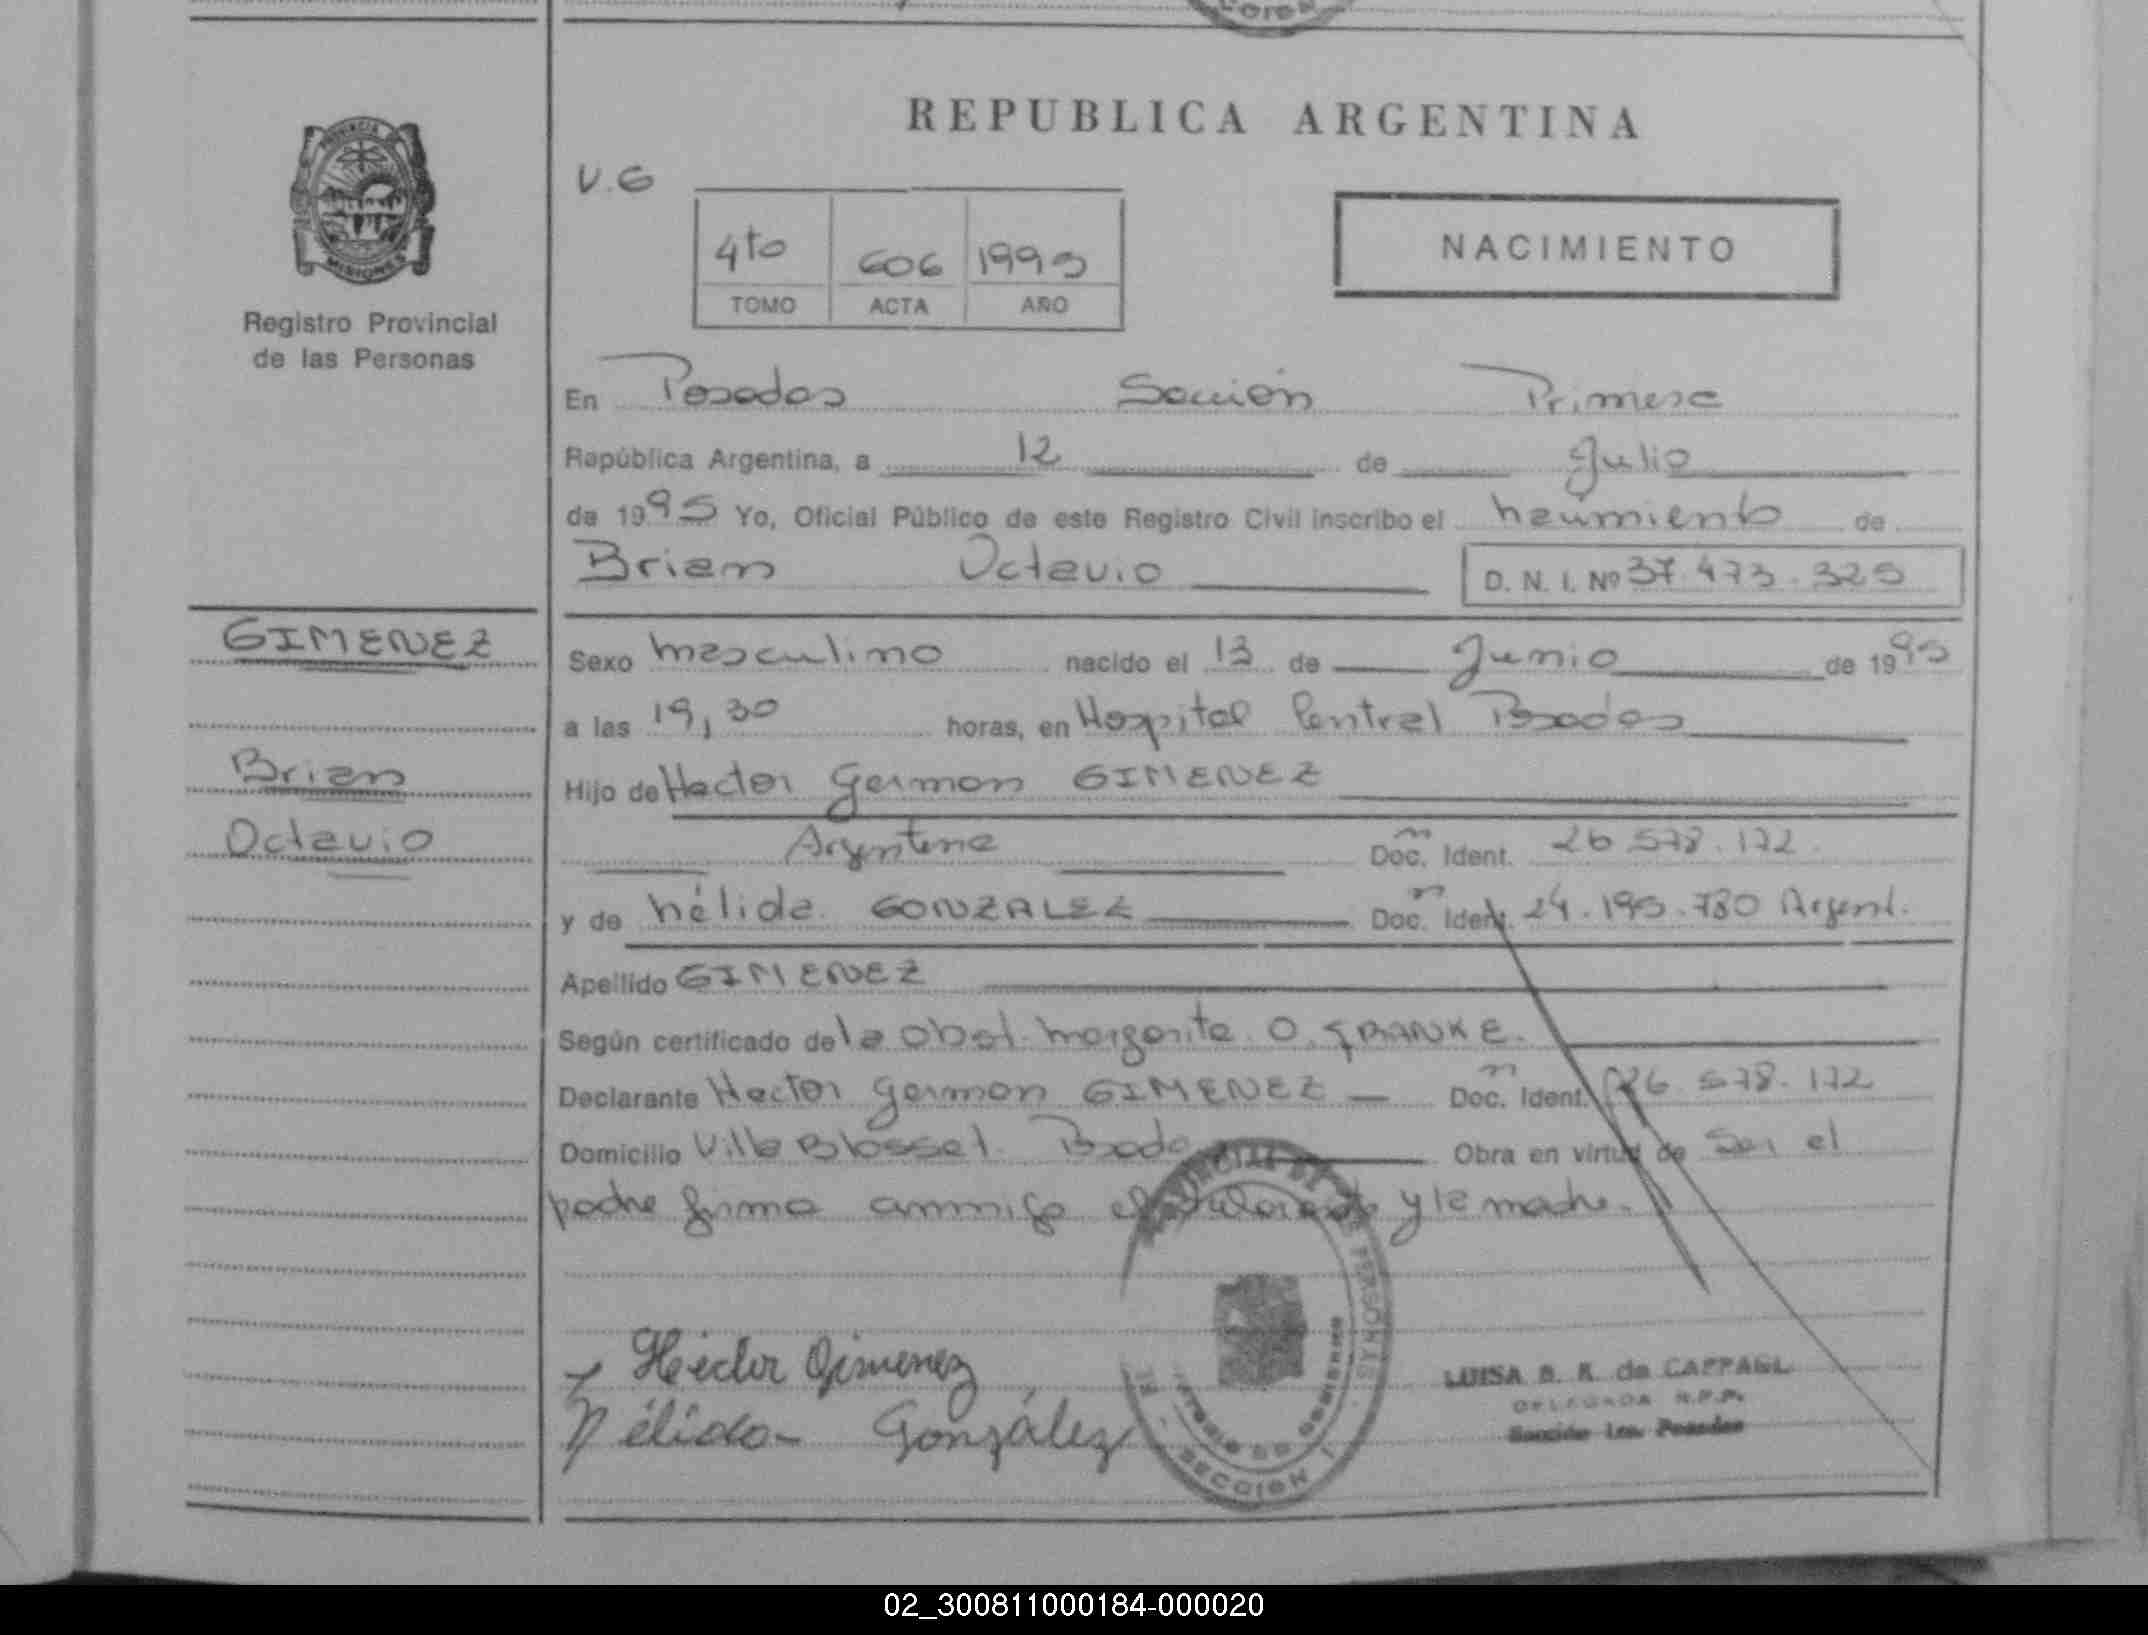 REPUBLICA ARGENTINA
PROVINCIA DE
MISIONES
Registro Provincial
de las Personas
V.G
4to 606 1995
TOMO ACTA AÑO
NACIMIENTO
En Posadas Sección Primera
República Argentina, a 12 de Julio
de 1995 Yo, Oficial Público de este Registro Civil inscribo el nacimiento de
Brian Octavio D. N. I. Nº 37.473.325
GIMENEZ
Brian
Octavio
Sexo masculino nacido el 13 de Junio de 1995
a las 19,30 horas, en Hospital Central Posadas
Hijo de Hector German GIMENEZ
Argentina Doc. Ident. 26.578.172.
y de Nélida GONZALEZ Doc. Ident. 24.195.780 Argent.
Apellido GIMENEZ
Según certificado de la Obst. Margarita O. FRANKE.
Declarante Hector German GIMENEZ Doc. Ident. 26.578.172
Domicilio Villa Blosset. Obra en virtud de Ser el
padre firma conmigo el y la madre.
Héctor Gimenez
Nélida González
SECCION 1
LUISA B. K. de CAPPAGL
DELEGADA R.P.P.
Sección 1ra. Posadas
02_300811000184-000020